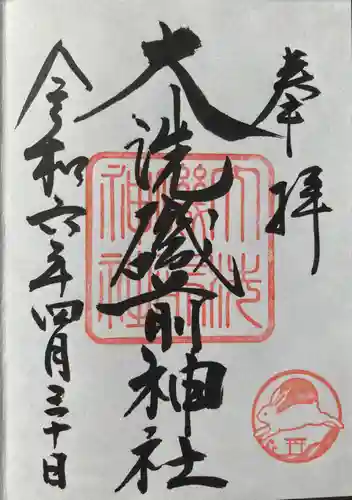 奉拝
大洗磯前神社
令和六年四月三十日
大洗磯前神社